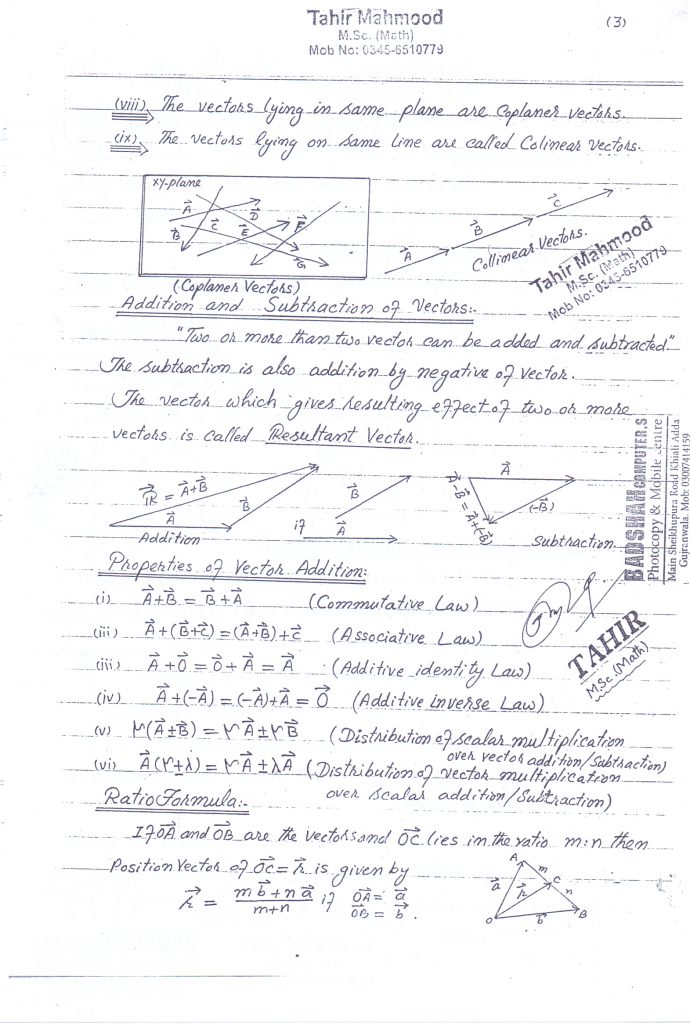 Tahir Mahmood
M.Sc. (Math)
Mob No: 0345-6510779
(3)
(viii) The vectors lying in same plane are Coplaner vectors.
(ix) The vectors lying on same line are called Colinear vectors.
xy-plane
A⃗ B⃗ C⃗ D⃗ E⃗ F⃗ G⃗
(Coplaner Vectors)
A⃗ B⃗ C⃗
Collinear Vectors.
Tahir Mahmood
M.Sc. (Math)
Mob No: 0345-6510779
Addition and Subtraction of Vectors:-
"Two or more than two vector can be added and subtracted."
The subtraction is also addition by negative of vector.
The vector which gives resulting effect of two or more
vectors is called Resultant Vector.
R⃗ = A⃗+B⃗
A⃗
B⃗
Addition
if
A⃗
B⃗
A⃗
A⃗-B⃗ = A⃗+(-B⃗)
(-B⃗)
Subtraction
BADSHAH COMPUTER.S
Photocopy & Mobile Centre
Main Sheikhupura Road Khiali Adda
Gujranwala. Mob: 03007414159
Properties of Vector Addition:
(i) A⃗+B⃗ = B⃗+A⃗ (Commutative Law)
(iii) A⃗+(B⃗+C⃗) = (A⃗+B⃗)+C⃗ (Associative Law)
(iii) A⃗+O⃗ = O⃗+A⃗ = A⃗ (Additive identity Law)
(iv) A⃗+(-A⃗) = (-A⃗)+A⃗ = O⃗ (Additive inverse Law)
TAHIR
M.Sc.(Math)
(v) μ(A⃗±B⃗) = μA⃗±μB⃗ (Distribution of scalar multiplication
over vector addition/Subtraction)
(vi) A⃗(μ±λ) = μA⃗±λA⃗ (Distribution of vector multiplication
over scalar addition/Subtraction)
Ratio Formula:-
If OA⃗ and OB⃗ are the vectors and OC⃗ lies in the ratio m:n then
Position Vector of OC⃗ = r⃗ is given by
r⃗ = (m b⃗ + n a⃗)/(m+n) if OA⃗ = a⃗
OB⃗ = b⃗.
A m C n B
a⃗ r⃗ b⃗ O